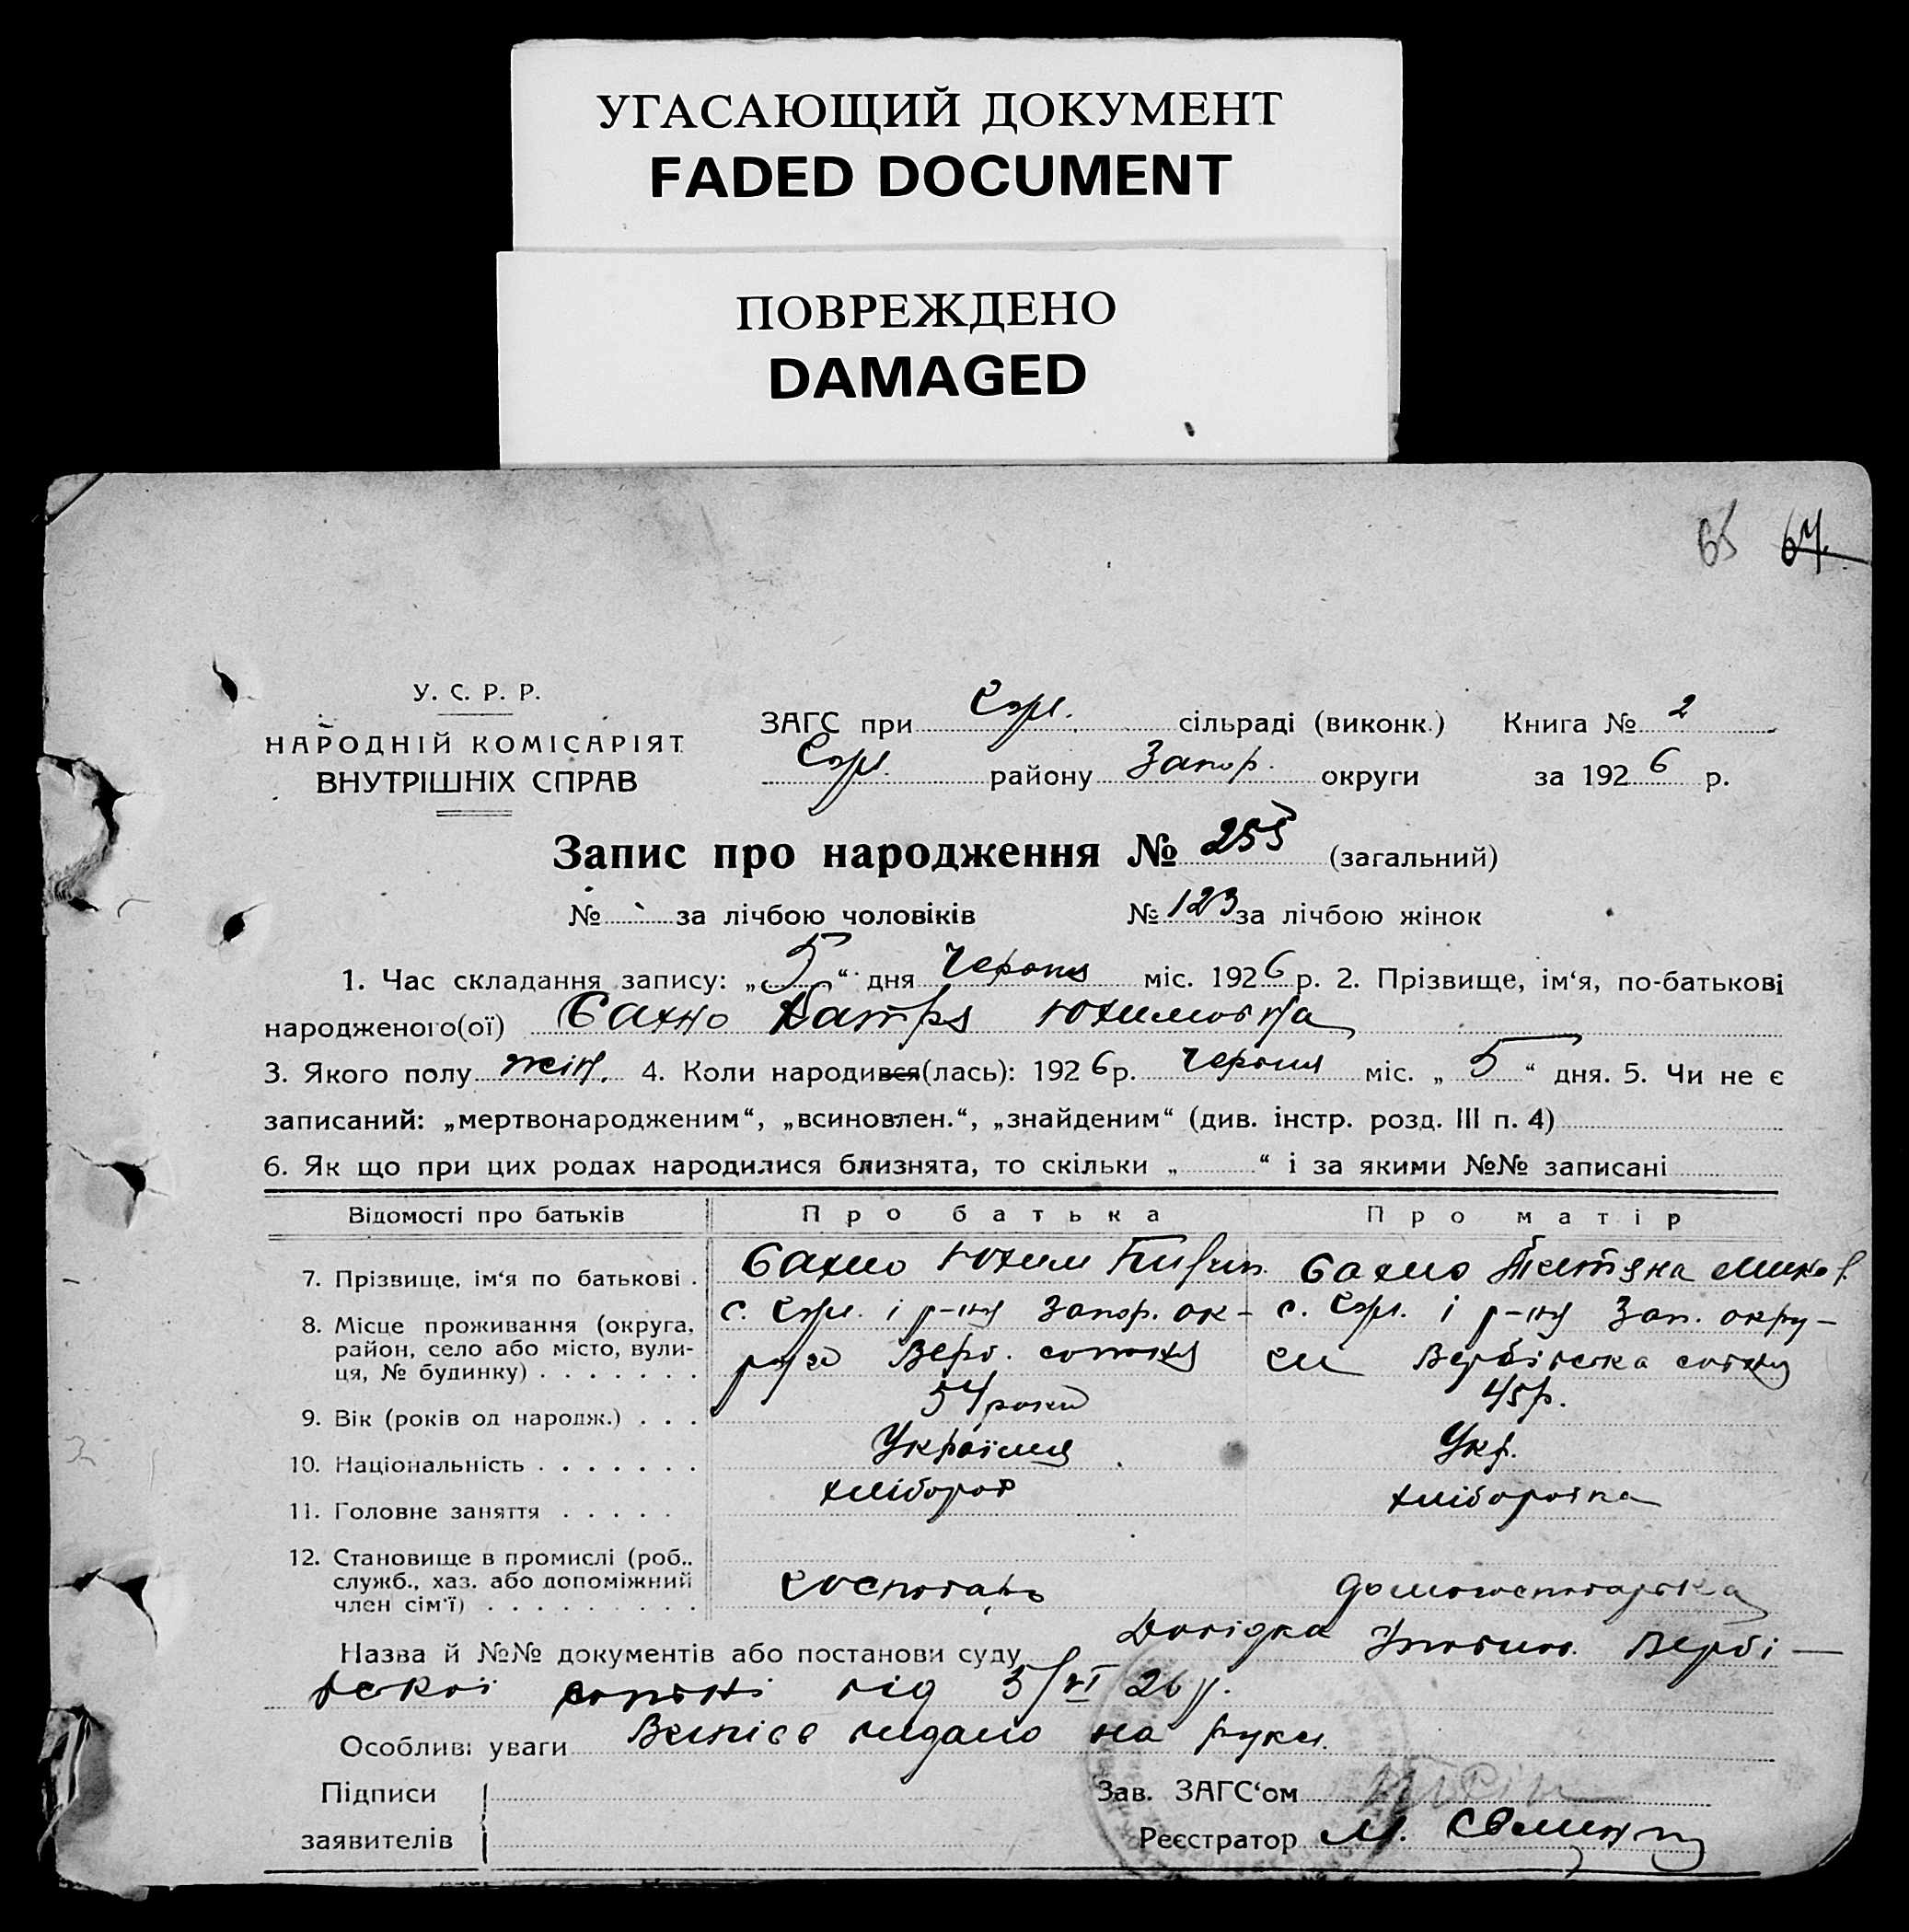 УГАСАЮЩИЙ ДОКУМЕНТ
FADED DOCUMENT
ПОВРЕЖДЕНО
DAMAGED
65 67.
У. С. Р. Р.
НАРОДНІЙ КОМІСАРІЯТ
ВНУТРІШНІХ СПРАВ
ЗАГС при сільраді (виконк.) Книга № 2
району Запор. округи за 1926 р.
Запис про народження № 255 (загальний)
№ за лічбою чоловіків № 123 за лічбою жінок
1. Час складання запису: „5“ дня Червня міс. 1926 р. 2. Прізвище, ім‘я, по-батькові
народженого(ої) Сахно Юхимовна
3. Якого полу жін. 4. Коли народився(лась): 1926 р. Червня міс. „5“ дня. 5. Чи не є
записаний: „мертвонародженим“, „всиновлен.“, „знайденим“ (див. інстр. розд. III п. 4)
6. Як що при цих родах народилися близнята, то скільки „ “ і за якими №№ записані
Відомості про батьків Про батька Про матір
7. Прізвище, ім‘я по батькові . Сахно Юхим Сахно Тетяна
8. Місце проживання (округа, район, село або місто, вулиця, № будинку) с. і р-ну Запор. ок-
руги Верб. сотня
с. і р-ну Зап. окру-
ги Вербівська сотня
9. Вік (років од народж.) . . . 54 роки 45 р.
10. Національність Українец Укр.
11. Головне заняття хлібороб хліборобка
12. Становище в промислі (роб., служб., хаз. або допоміжний член сім‘ї) господарь домогосподарька
Назва й №№ документів або постанови суду Довідка Вербі-
вскої сотні від 5/VI 26 р.
Особливі уваги Випис видано на руки.
Підписи
заявителів
Зав. ЗАГС‘ом
Реєстратор М.